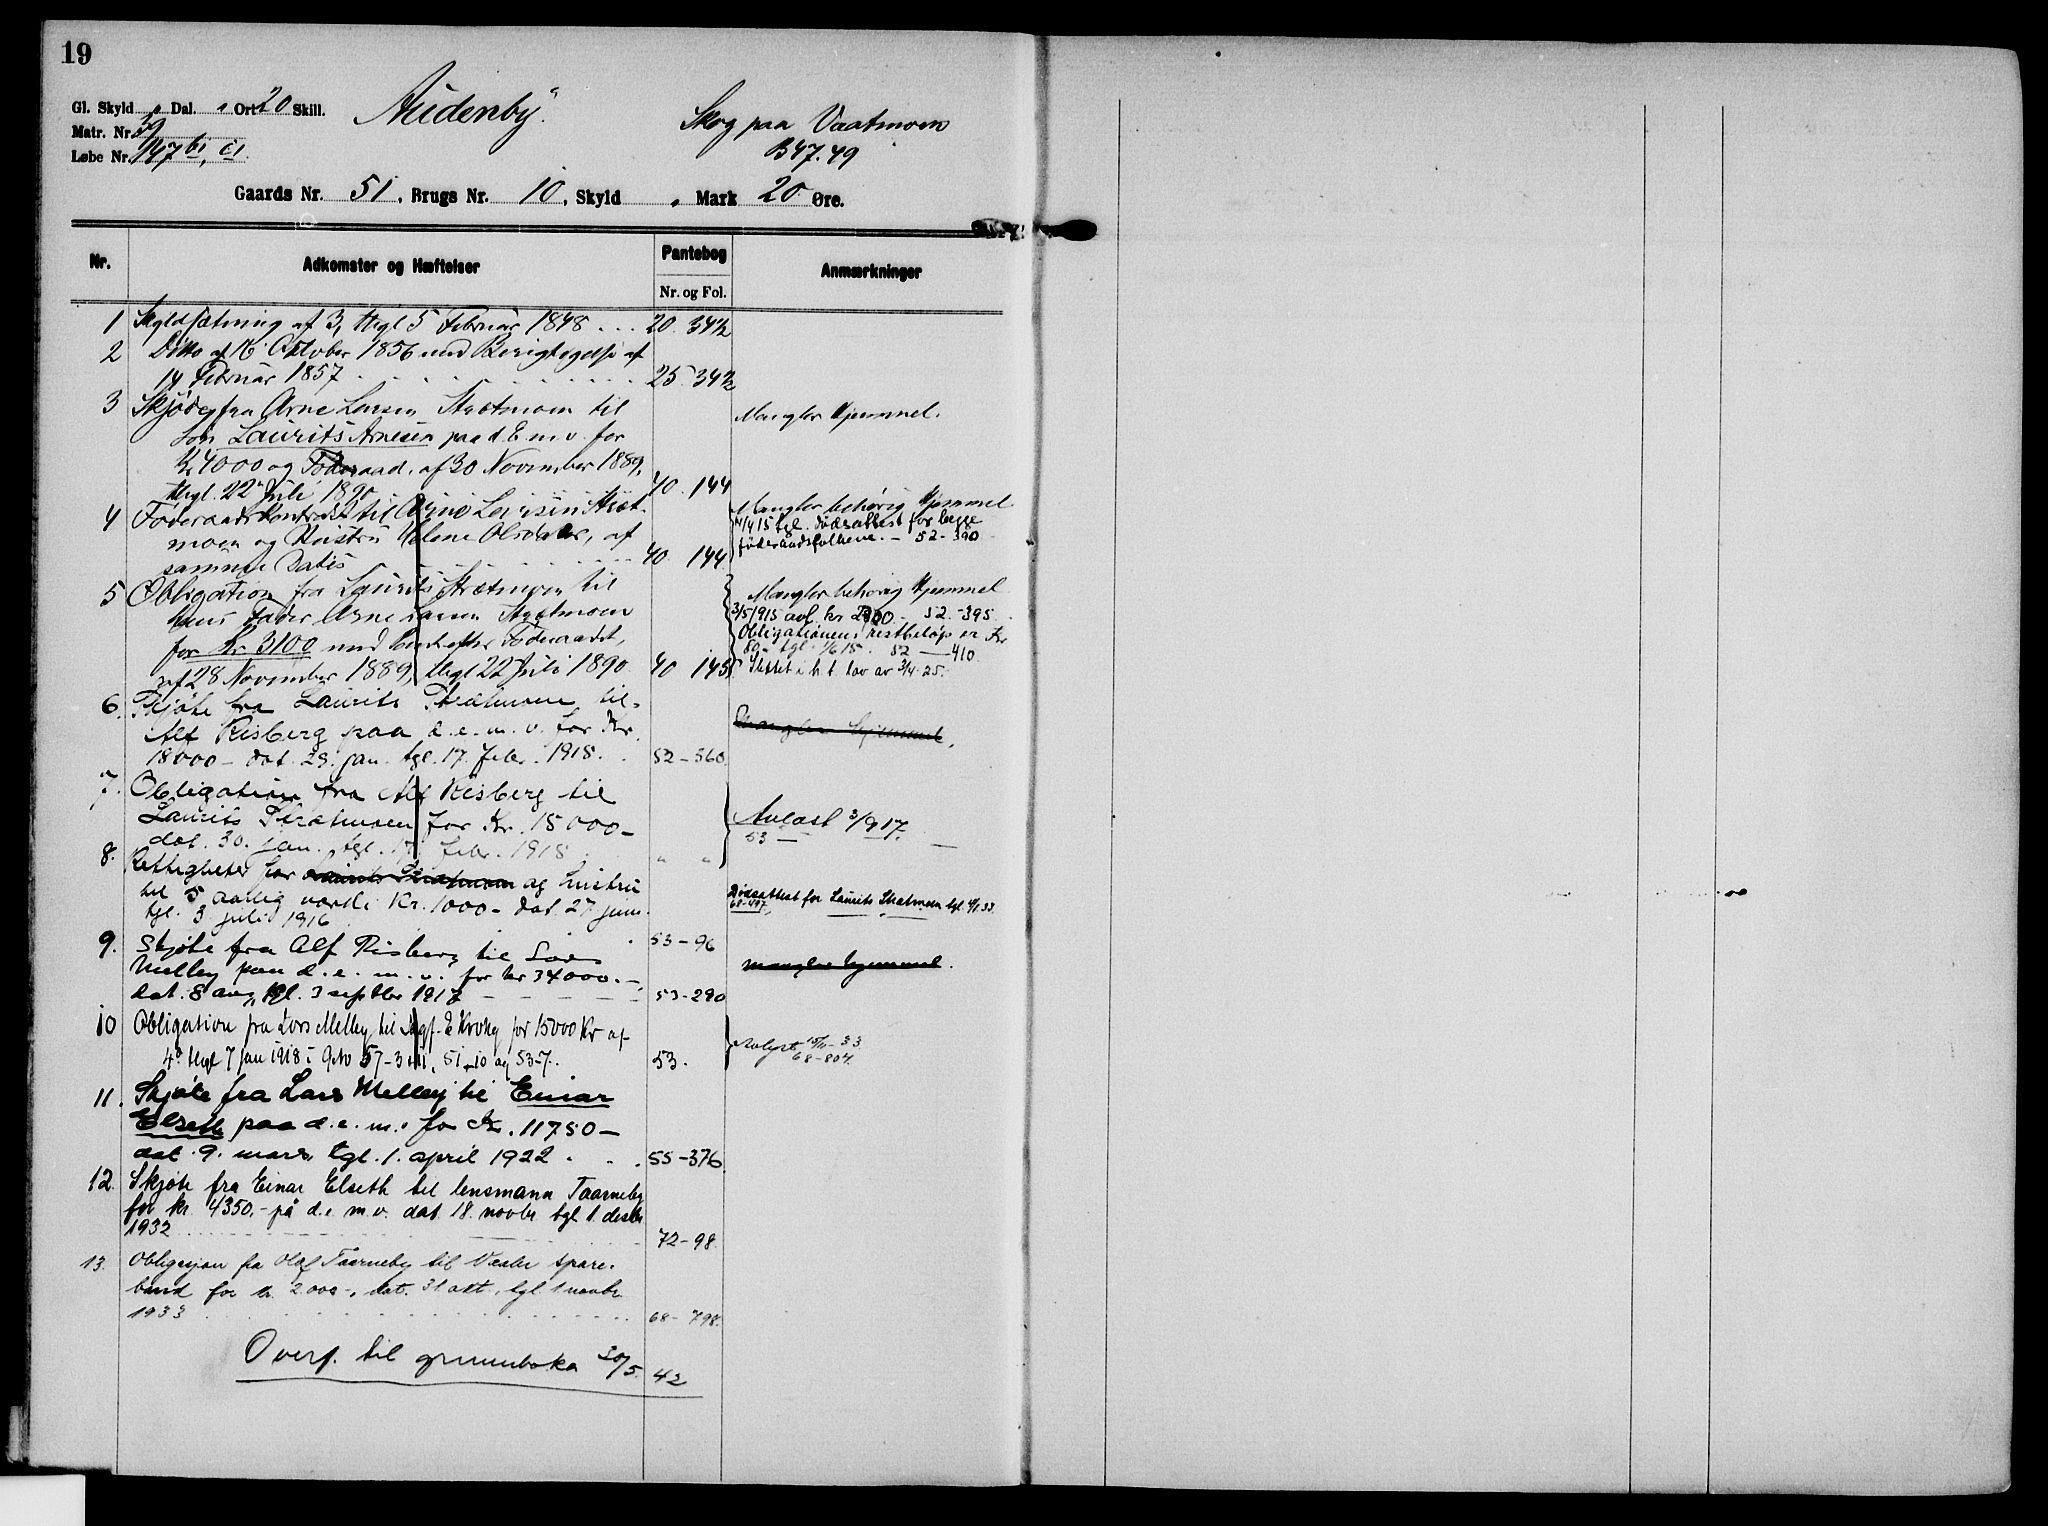 19
Gl. Skyld „ Dal. „ Ort 20 Skill.
Matr. Nr. 59
Løbe Nr. 147 b1, c1.
Audenby"
Skog paa Vaatmoen
B 47.49
Gaards Nr. 51, Brugs Nr. 10, Skyld „ Mark 20 Øre.
Nr.
Adkomster og Hæftelser
Pantebog
Nr. og Fol.
Anmærkninger
1 Skyldsætning af 3, thgl 5 Februar 1848 . . . 20. 341/2
2 Ditto af 16 Oktober 1856 med Berigtigelse af
14 Februar 1857 . . . 25. 341/2
3 Skjøde fra Arne Larsen Strætmoen til
Søn Laurits Arnesen paa d. E. m. v. for
Kr 4000 og Føderaad, af 30 November 1889,
thgl. 22 Juli 1890 40. 144
Mangler Hjemmel.
4 Føderaadskontrakt til Arne Larsen Stræt-
moen og Hustru Helene Olsdatter, af
samme Datis 40. 144
Mangler behörig Hjemmel
4/15 tgl. dødsattest for begge
föderaadsfolkene. – 52-390
5 Obligation fra Laurits Strætmoen til
hans Fader Arne Larsen Strætmoen
for Kr 3100 med Pant efter Föderaadet,
af 28 November 1889, thgl 22 Juli 1890. 40 145
Mangler behørig Hjemmel
3/5 1915 avl. kr – 52.-395.
Obligationens restbeløp er Kr
80.- tgl. 1/6 15. 52 — 410.
Slettet i h. t. lov av 3/4-25.
6. Skjöte fra Laurits Strætmoen til
Alf Risberg paa d. e. m. v. for Kr.
18000 – dat. 29. jan. tgl. 17. febr. 1915. 52-360
Mangler hjemmel.
7. Obligation fra Alf Risberg til
Laurits Strætmoen for Kr. 15000–
dat. 30. jan. tgl. 17. febr. 1915 „ „
Avlæst 3/9 17.
53 —
8. Rettigheter for Laurits Strætmoen og hustru
til 5 aarlig værdi Kr. 1000– dat. 27 juni
tgl. 3 juli 1916 53-96
Dødsattest for Laurits Strætmoen tgl. 33.
68-497.
9. Skjøte fra Alf Risberg til Lars
Melleby paa d. e. m. v. for kr 34000.–
dat. 8 aug tgl. 3 septbr 1917 53-290
mangler hjemmel.
10 Obligation fra Lars Melleby til E. Krohg for 15000 Kr af
4de thgl 7 jan 1918 i Gno 57-3 51-10 og 53-7. 53.
Avlyst 15/11-33
68-804.
11. Skjøte fra Lars Melleby til Einar
Elseth paa d. e. m. v for Kr. 11750–
dat. 9. mars tgl. 1. april 1922 . . . 55-376
12. Skjøte fra Einar Elseth til lensmann Taarneby
for kr. 4350.- på d. e. m. v. dat. 18. novbr tgl 1. desbr
1932 72-98.
13. Obligasjon fra Olaf Taarneby til Vaaler spare-
bank for kr. 2.000-, dat. 31 okt., tgl 1 novbr
1933 68-798.
Overf. til grunnboka 20/5. 42